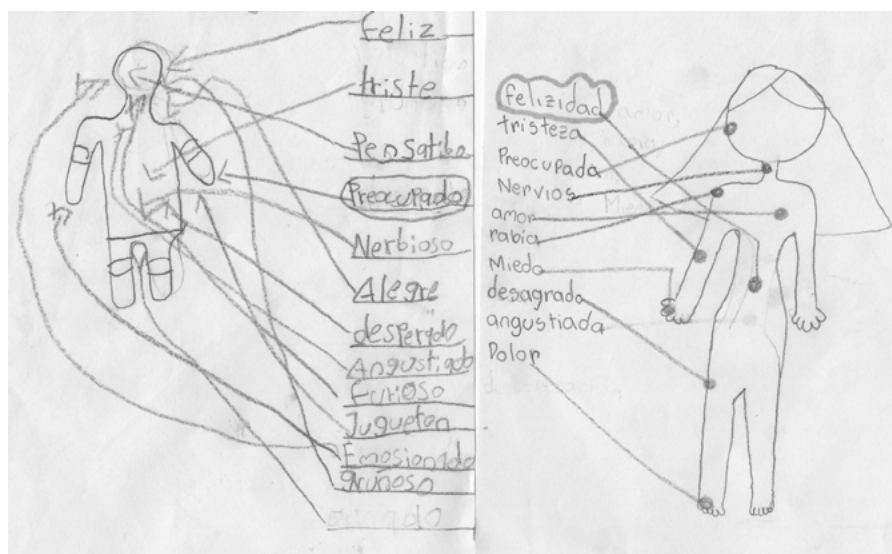 feliz
triste
Pensatibo
Preocupado
Nerbioso
Alegre
desperado
Angustiado
furioso
Jugueton
Emosionado
gruñoso
felizidad
tristeza
Preocupada
Nervios
amor
rabia
Miedo
desagrado
angustiada
Dolor